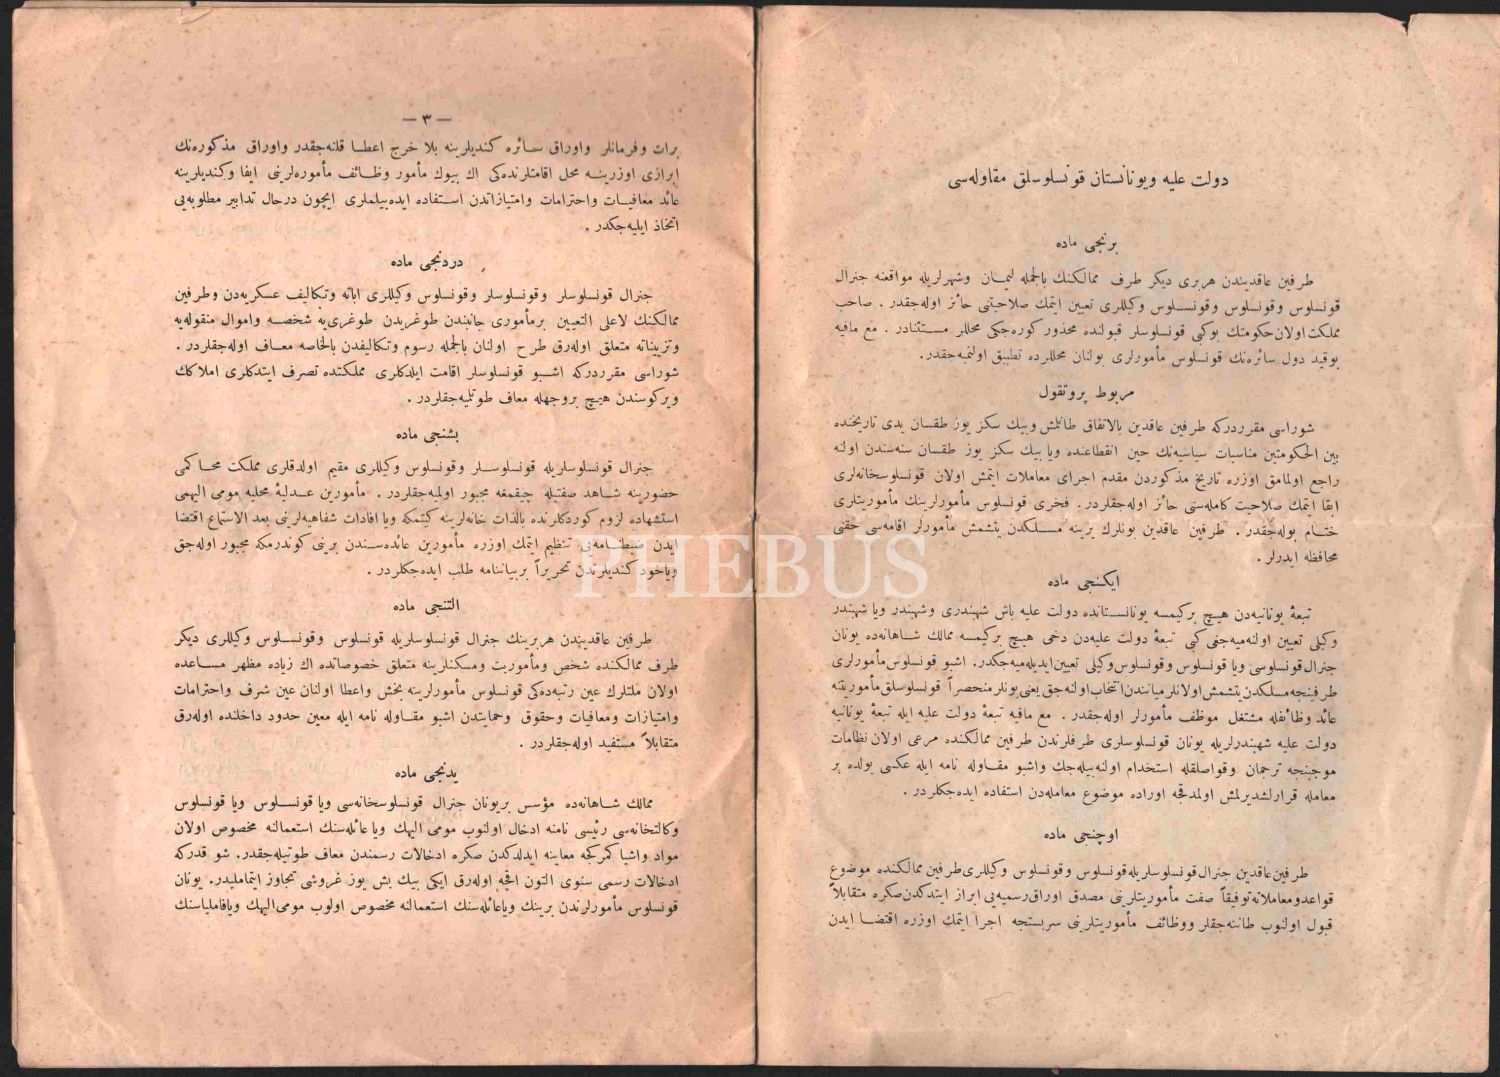 دولت علیه ویونانستان قونسلوسلق مقاوله‌سی
برنجی ماده
طرفین عاقدیندن هربری دیکر طرف ممالکنك بالجمله لیمان وشهرلریله مواقعنه جنرال
قونسلوس وقونسلوس وقونسلوس وکیللری تعیین ایتمك صلاحیتی حائز اوله‌جقدر . صاحب
مملکت اولان حکومتك بوکبی قونسلوسلر قبولنده محذور کوره‌جکی محللر مستثنادر . مع مافیه
بوقید دول سائره‌نك قونسلوس مأمورلری بولنان محللرده تطبیق اولنمیه‌جقدر.
مربوط پروتقول
شوراسی مقرردرکه طرفین عاقدین بالاتفاق طانلمش وبیك سکز یوز طقسان یدی تاریخنده
بین الحکومتین مناسبات سیاسیه‌نك حین انقطاعنده ویا بیك سکز یوز طقسان سنه‌سندن اولنه
راجع اولمامق اوزره تاریخ مذکوردن مقدم اجرای معاملات ایتمش اولان قونسلوسخانه‌لری
ابقا ایتمك صلاحیت کامله‌سنی حائز اوله‌جقلردر. فخری قونسلوس مأمورلرینك مأموریتلری
ختام بوله‌جقدر . طرفین عاقدین بونلرك یرینه مسلکدن یتشمش مأمورلر اقامه‌سی حقنی
محافظه ایدرلر .
ایکنجی ماده
تبعۀ یونانیه‌دن هیچ برکیمسه یونانستانده دولت علیه باش شهبندری وشهبندر ویا شهبندر
وکیلی تعیین اولنه‌میه‌جغی کبی تبعۀ دولت علیه‌دن دخی هیچ برکیمسه ممالك شاهانه‌ده یونان
جنرال قونسلوسی ویا قونسلوس وقونسلوس وکیلی تعیین ایدیله‌میه‌جکدر. اشبو قونسلوس مأمورلری
طرفینجه مسلکدن یتشمش اولانلر میانندن انتخاب اولنه‌جق یعنی بونلر منحصراً قونسلوسلق مأموریتنه
عائد وظائفله مشتغل موظف مأمورلر اوله‌جقدر . مع مافیه تبعۀ دولت علیه ایله تبعۀ یونانیه
دولت علیه شهبندرلریله یونان قونسلوسلری طرفلرندن طرفین ممالکنده مرعی اولان نظامات
موجبنجه ترجمان وقواصلقله استخدام اولنه‌بیله‌جك واشبو مقاوله نامه ایله عکسی یولده بر
معامله قرارلشدیرلمش اولمدقجه اوراده موضوع معامله‌دن استفاده ایده‌جکلردر .
اوچنجی ماده
طرفین عاقدین جنرال قونسلوسلریله قونسلوس وقونسلوس وکیللری طرفین ممالکنده موضوع
قواعد ومعاملاته توفیقاً صفت مأموریتلرینی مصدق اوراق رسمیه‌یی ابراز ایتدکدن صکره متقابلاً
قبول اولنوب طاننه‌جقلر ووظائف مأموریتلرینی سربستجه اجرا ایتمك اوزره اقتضا ایدن
— ٣ —
برات وفرمانلر واوراق سائره کندیلرینه بلا خرج اعطا قلنه‌جقدر واوراق مذکوره‌نك
ابرازی اوزرینه محل اقامتلرنده‌کی اك بیوك مأمور وظائف مأموره‌لرینی ایفا وکندیلرینه
عائد معافیات واحترامات وامتیازاتدن استفاده ایده‌بیلملری ایچون درحال تدابیر مطلوبه‌یی
اتخاذ ایلیه‌جکدر .
دردنجی ماده
جنرال قونسلوسلر وقونسلوسلر وقونسلوس وکیللری اباته وتکالیف عسکریه‌دن وطرفین
ممالکنك لاعلی التعیین برمأموری جانبندن طوغریدن طوغری‌یه شخصه واموال منقوله‌یه
وتزییناته متعلق اوله‌رق طرح اولنان بالجمله رسوم وتکالیفدن بالخاصه معاف اوله‌جقلردر .
شوراسی مقرردرکه اشبو قونسلوسلر اقامت ایلدکلری مملکتده تصرف ایتدکلری املاکك
ویرکوسندن هیچ بروجهله معاف طوتلمیه‌جقلردر .
بشنجی ماده
جنرال قونسلوسلریله قونسلوسلر وقونسلوس وکیللری مقیم اولدقلری مملکت محاکمی
حضورینه شاهد صفتیله چیقمغه مجبور اولمیه‌جقلردر . مأمورین عدلیۀ محلیه مومی الیهمی
استشهاده لزوم کوردکلرنده بالذات خانه‌لرینه کیتمکه ویا افادات شفاهیه‌لرینی بعد الاستماع اقتضا
ایدن ضبطنامه‌یی تنظیم ایتمك اوزره مأمورین عائده‌سندن برینی کوندرمکه مجبور اوله‌جق
ویاخود کندیلرندن تحریراً بربیاننامه طلب ایده‌جکلردر .
التنجی ماده
طرفین عاقدیندن هربرینك جنرال قونسلوسلریله قونسلوس وقونسلوس وکیللری دیکر
طرف ممالکنده شخص ومأموریت ومسکنلرینه متعلق خصوصاتده اك زیاده مظهر مساعده
اولان ملتلرك عین رتبه‌ده‌کی قونسلوس مأمورلرینه بخش واعطا اولنان عین شرف واحترامات
وامتیازات ومعافیات وحقوق وحمایتدن اشبو مقاوله نامه ایله معین حدود داخلنده اوله‌رق
متقابلاً مستفید اوله‌جقلردر .
یدنجی ماده
ممالك شاهانه‌ده مؤسس بریونان جنرال قونسلوسخانه‌سی ویا قونسلوس ویا قونسلوس
وکالتخانه‌سی رئیسی نامنه ادخال اولنوب مومی الیهك ویا عائله‌سنك استعمالنه مخصوص اولان
مواد واشیا کمرکجه معاینه ایدلدکدن صکره ادخالات رسمندن معاف طوتیله‌جقدر. شو قدرکه
ادخالات رسمی سنوی التون اقچه اوله‌رق ایکی بیك بش یوز غروشی تجاوز ایتمامیلدر. یونان
قونسلوس مأمورلرندن برینك ویاعائله‌سنك استعمالنه مخصوص اولوب مومی الیهك ویافامیلیاسنك
PHEBUS